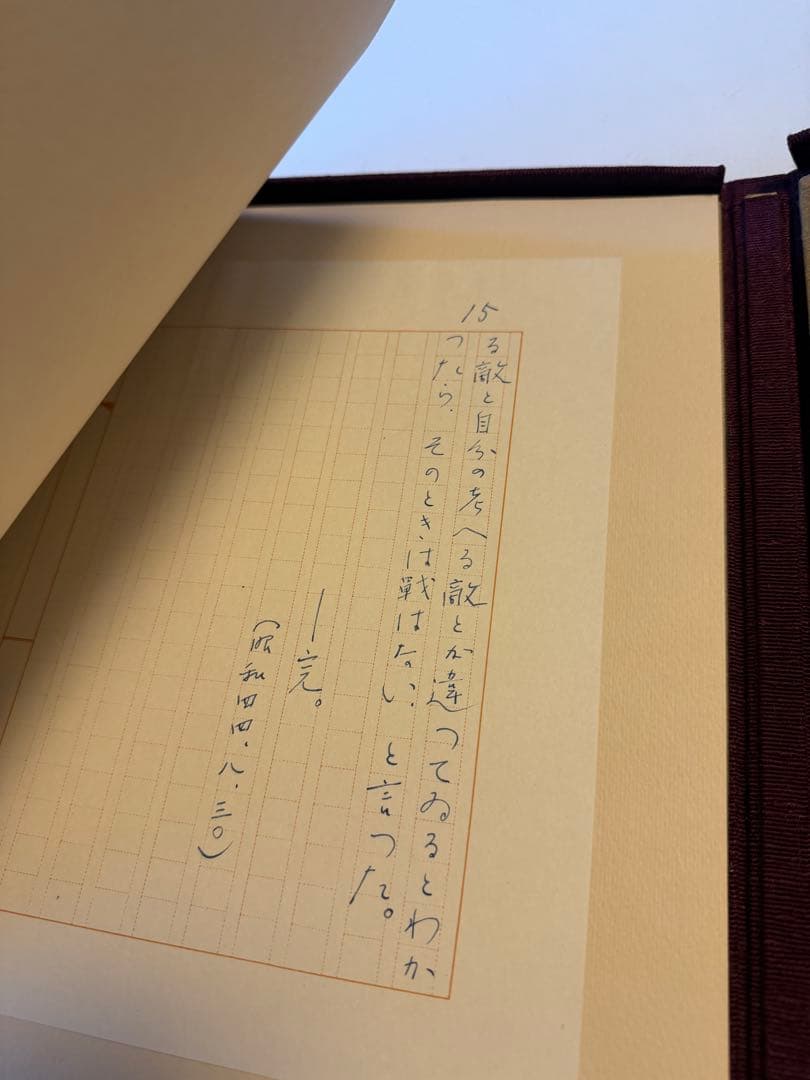 15
る敵と自分の考へる敵とが違つてゐるとわか
つたら、そのときは戰はない、と言つた。
―完。
(昭和四四・八・三〇)